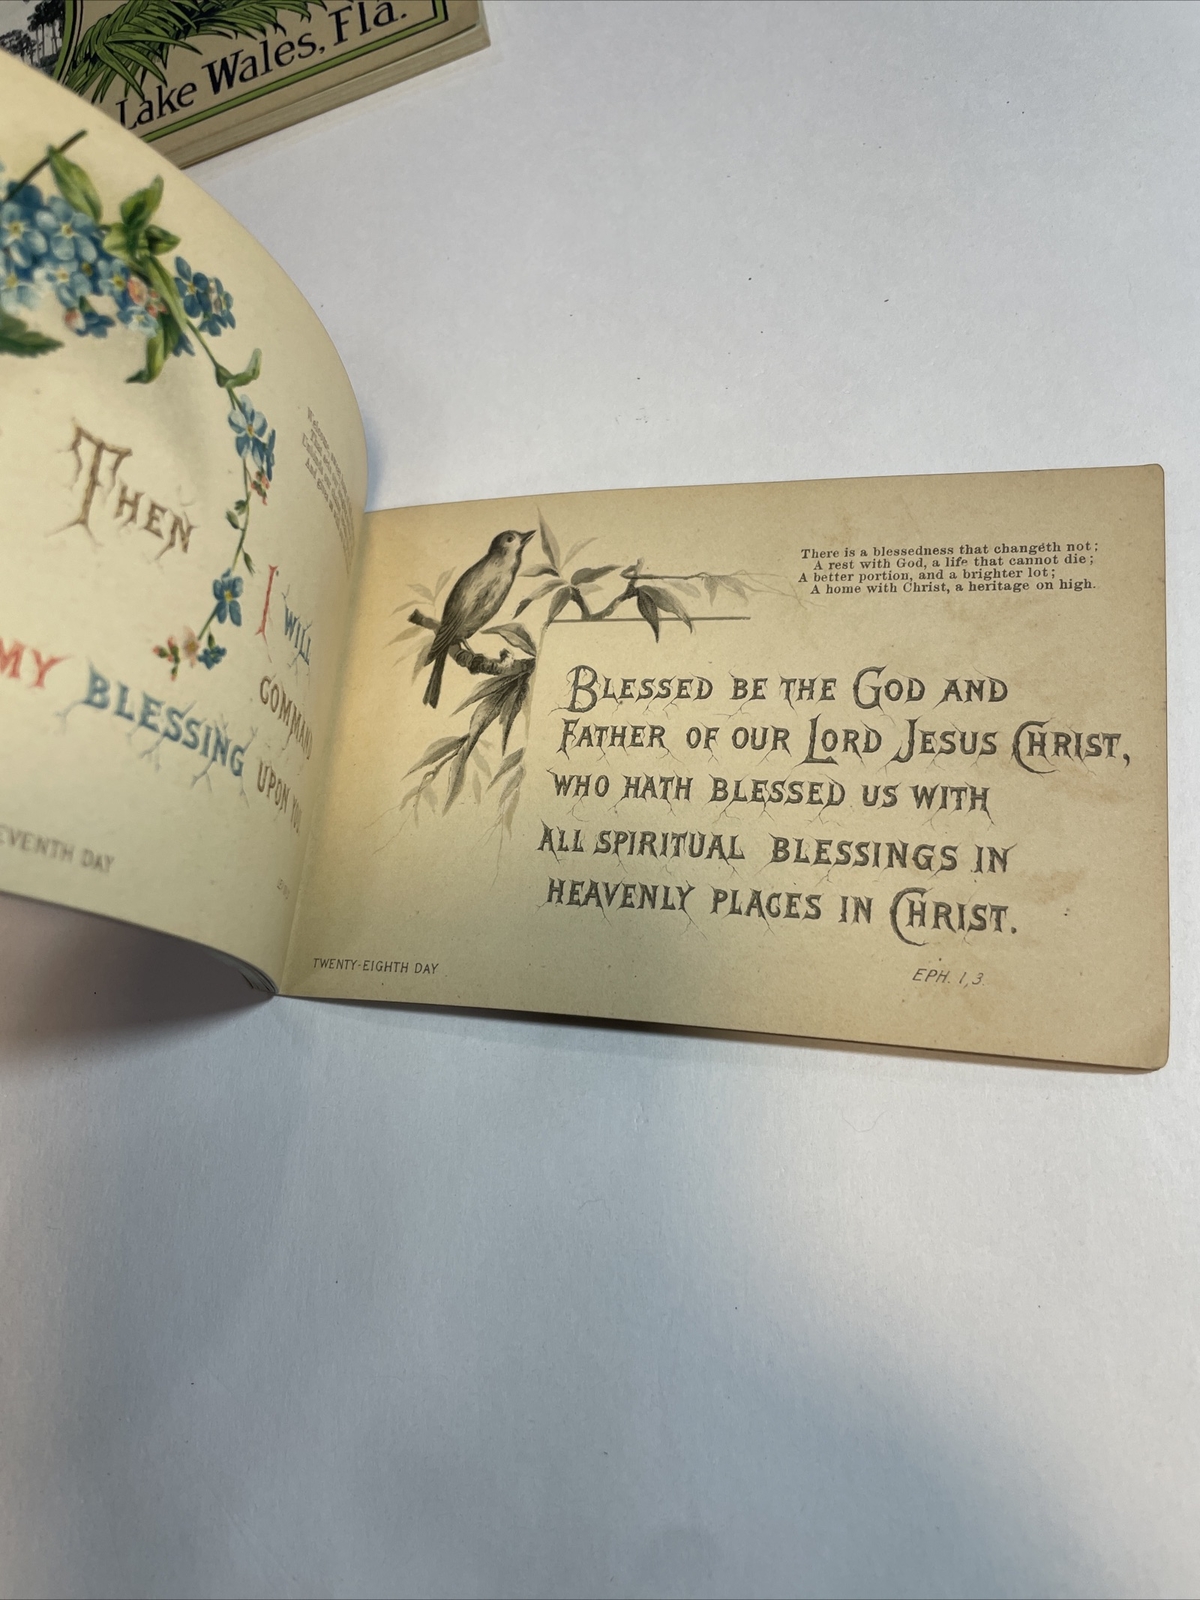 Lake Wales, Fla.
THEN
I WILL
COMMAND
MY BLESSING
UPON YOU
EVENTH DAY
There is a blessedness that changeth not;
A rest with God, a life that cannot die;
A better portion, and a brighter lot;
A home with Christ, a heritage on high.
BLESSED BE THE GOD AND
FATHER OF OUR LORD JESUS CHRIST,
WHO HATH BLESSED US WITH
ALL SPIRITUAL BLESSINGS IN
HEAVENLY PLACES IN CHRIST.
TWENTY-EIGHTH DAY
EPH. 1,3.